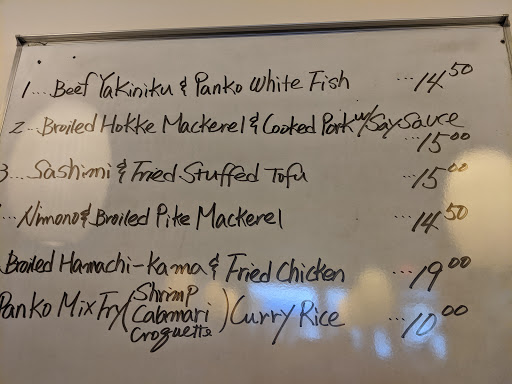 1... Beef Yakiniku & Panko White Fish ... 14 50
2... Broiled Hokke Mackerel & Cooked Pork w/ Soy Sauce
... 15 00
3... Sashimi & Fried Stuffed Tofu ... 15 00
... Nimono & Broiled Pike Mackerel ... 14 50
Broiled Hamachi-Kama & Fried Chicken ... 19 00
Panko Mix Fry (Shrimp Calamari Croquette) Curry Rice ... 10 00